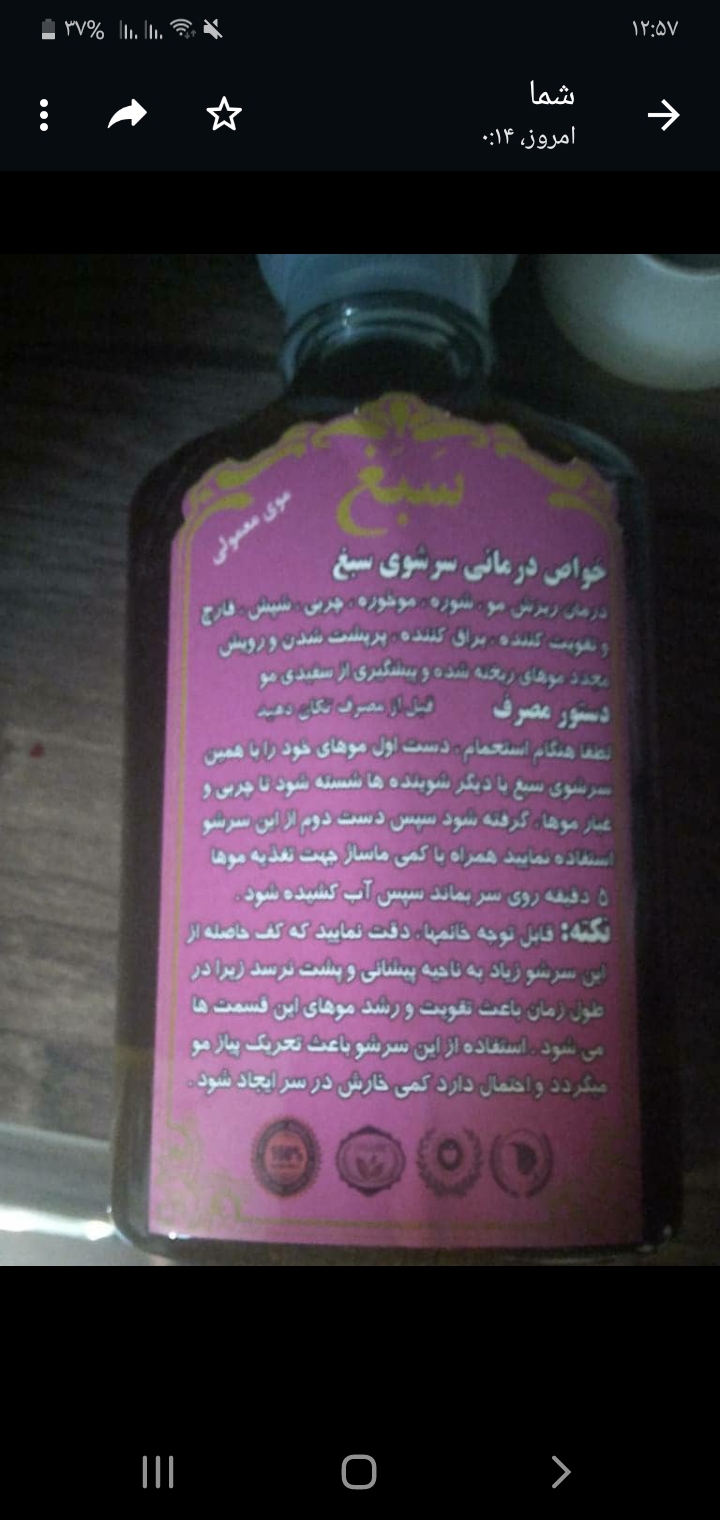 ۱۲:۵۷
۳۷%
شما
امروز، ۰:۱۴
سَبَغ
موی معمولی
خواص درمانی سرشوی سبغ
درمان ریزش مو ، شوره ، موخوره ، چربی ، شپش ، قارچ
و تقویت کننده ، براق کننده ، پرپشت شدن و رویش
مجدد موهای ریخته شده و پیشگیری از سفیدی مو
دستور مصرف قبل از مصرف تکان دهید
لطفا هنگام استحمام ، دست اول موهای خود را با همین
سرشوی سبغ یا دیگر شوینده ها شسته شود تا چربی و
غبار موها، گرفته شود سپس دست دوم از این سرشو
استفاده نمایید همراه با کمی ماساژ جهت تغذیه موها
۵ دقیقه روی سر بماند سپس آب کشیده شود .
نکته: قابل توجه خانمها، دقت نمایید که کف حاصله از
این سرشو زیاد به ناحیه پیشانی و پشت نرسد زیرا در
طول زمان باعث تقویت و رشد موهای این قسمت ها
می شود . استفاده از این سرشو باعث تحریک پیاز مو
میگردد و احتمال دارد کمی خارش در سر ایجاد شود .
100%